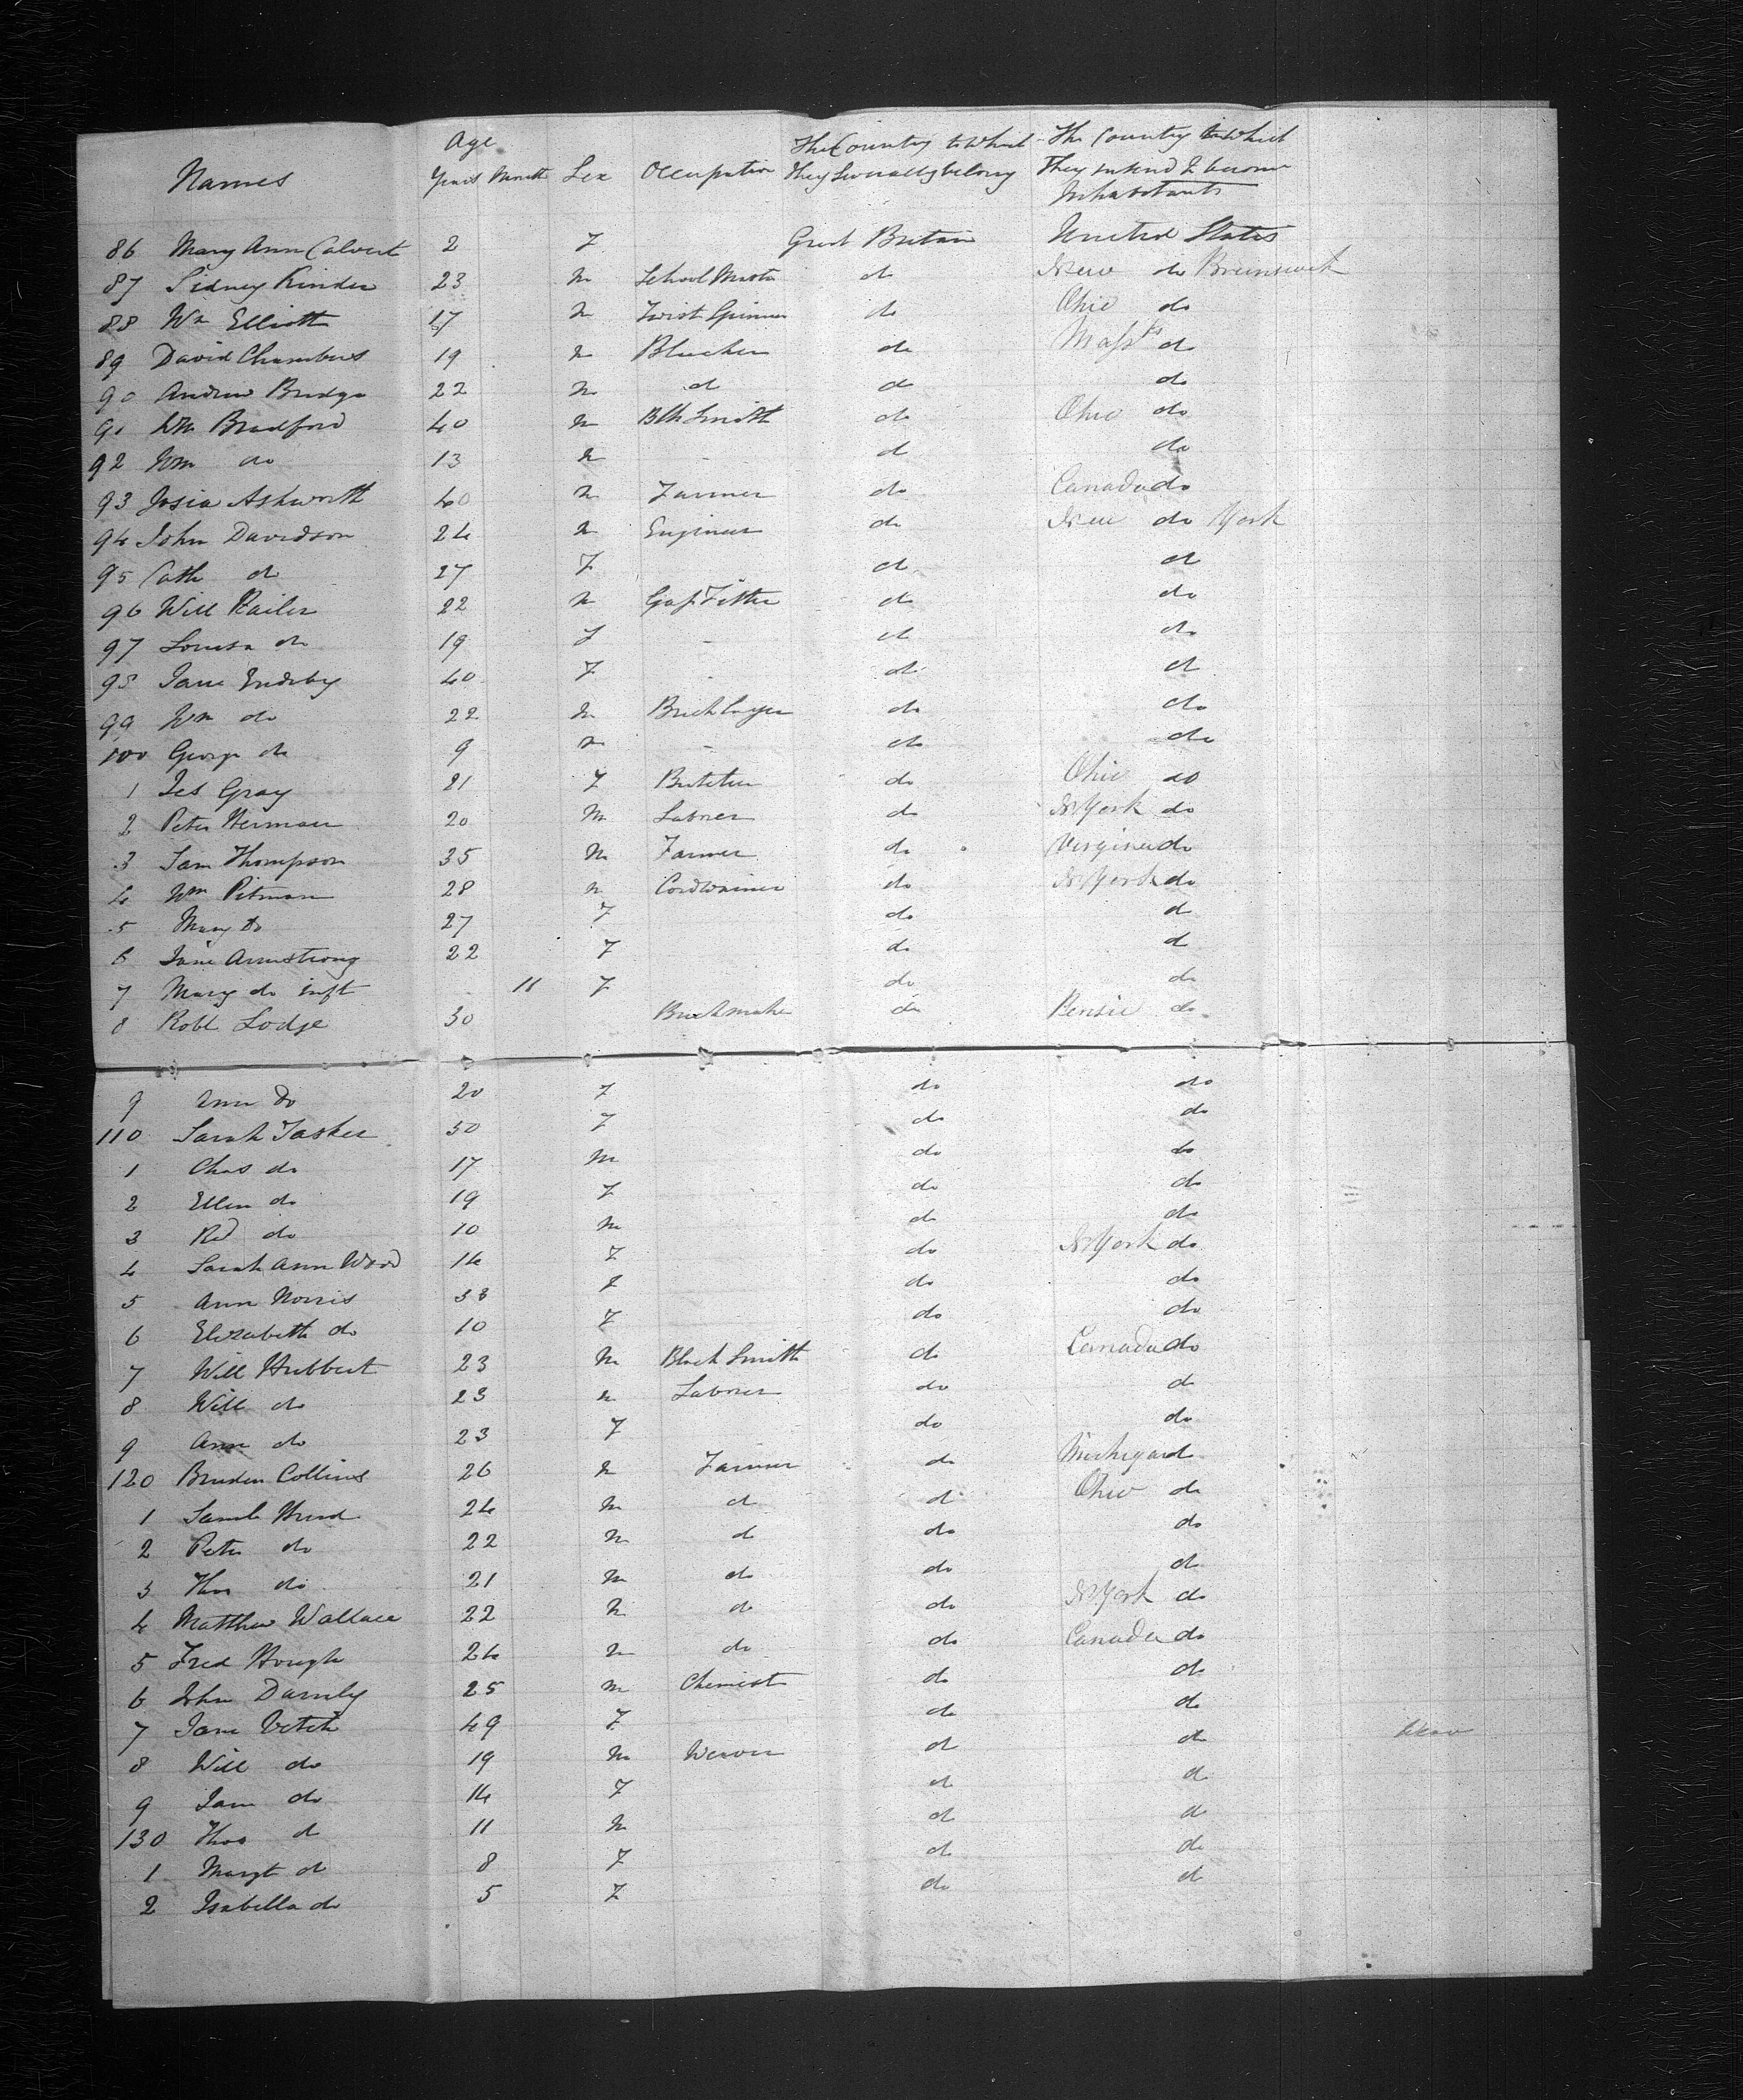 Age
Names Years Months Sex Occupation The Country to Which They Severally belong The Country in Which They intend to become Inhabitants
86 Mary Ann Calvert 2 F Great Britain United States
87 Sidney Kinder 23 M School Master do New do Brunswick
88 Wm Elliott 17 M Twist Spinner do Ohio do
89 David Chambers 19 M do Massts do
90 Andrew Bridge 22 M do do do
91 Wm Bradford 40 M Blk Smith do Ohio do
92 Wm do 13 M - do do
93 Josia Ashworth 40 M Farmer do Canada do
94 John Davidson 24 M Engineer do New do York
95 Cath do 27 F do do
96 Will Railer 22 M Gas Fitter do do
97 Louisa do 19 F - do do
98 Jane Enderby 40 F - do do
99 Wm do 22 M Brick layer do do
100 George do 9 M - do do
1 Jes Gray 21 F Butcher do Ohio do
2 Peter Herman 20 M Labrer do N York do
3 Sam Thompson 35 M Farmer do Virginia do
4 Wm Pitman 28 M Cordwainer do N York do
5 Mary Do 27 F do do
6 Jane Armstrong 22 F do do
7 Mary do inft 11 F do do
8 Robt Lodge 30 Brickmaker do Pensie do
9 Ann Do 20 F do do
110 Sarah Tasker 50 F do do
1 Chas do 17 M do do
2 Ellen do 19 F do do
3 Rd do 10 M do do
4 Sarah Ann Wood 14 F do N York do
5 Ann Norris 38 F do do
6 Elizabeth do 10 F do do
7 Will Hubbert 23 M Black Smith do Canada do
8 Will do 23 M Labrer do do
9 Ann do 23 F do do
120 Collins 26 M Farmer do Michigan d
1 Saml Hurd 24 M do do Ohio do
2 Peter do 22 M do do do
3 Thos do 21 M do do do
4 Matthew Wallace 22 M do do N York do
5 Fred Hough 24 M do do Canada do
6 John Darnly 25 M Chemist do do
7 Jane Veteh 49 F do do
8 Will do 19 M Weaver do do
9 Jane do 14 F do do
130 Thos do 11 M do do
1 Margt do 8 F do do
2 Isabella do 5 F do do